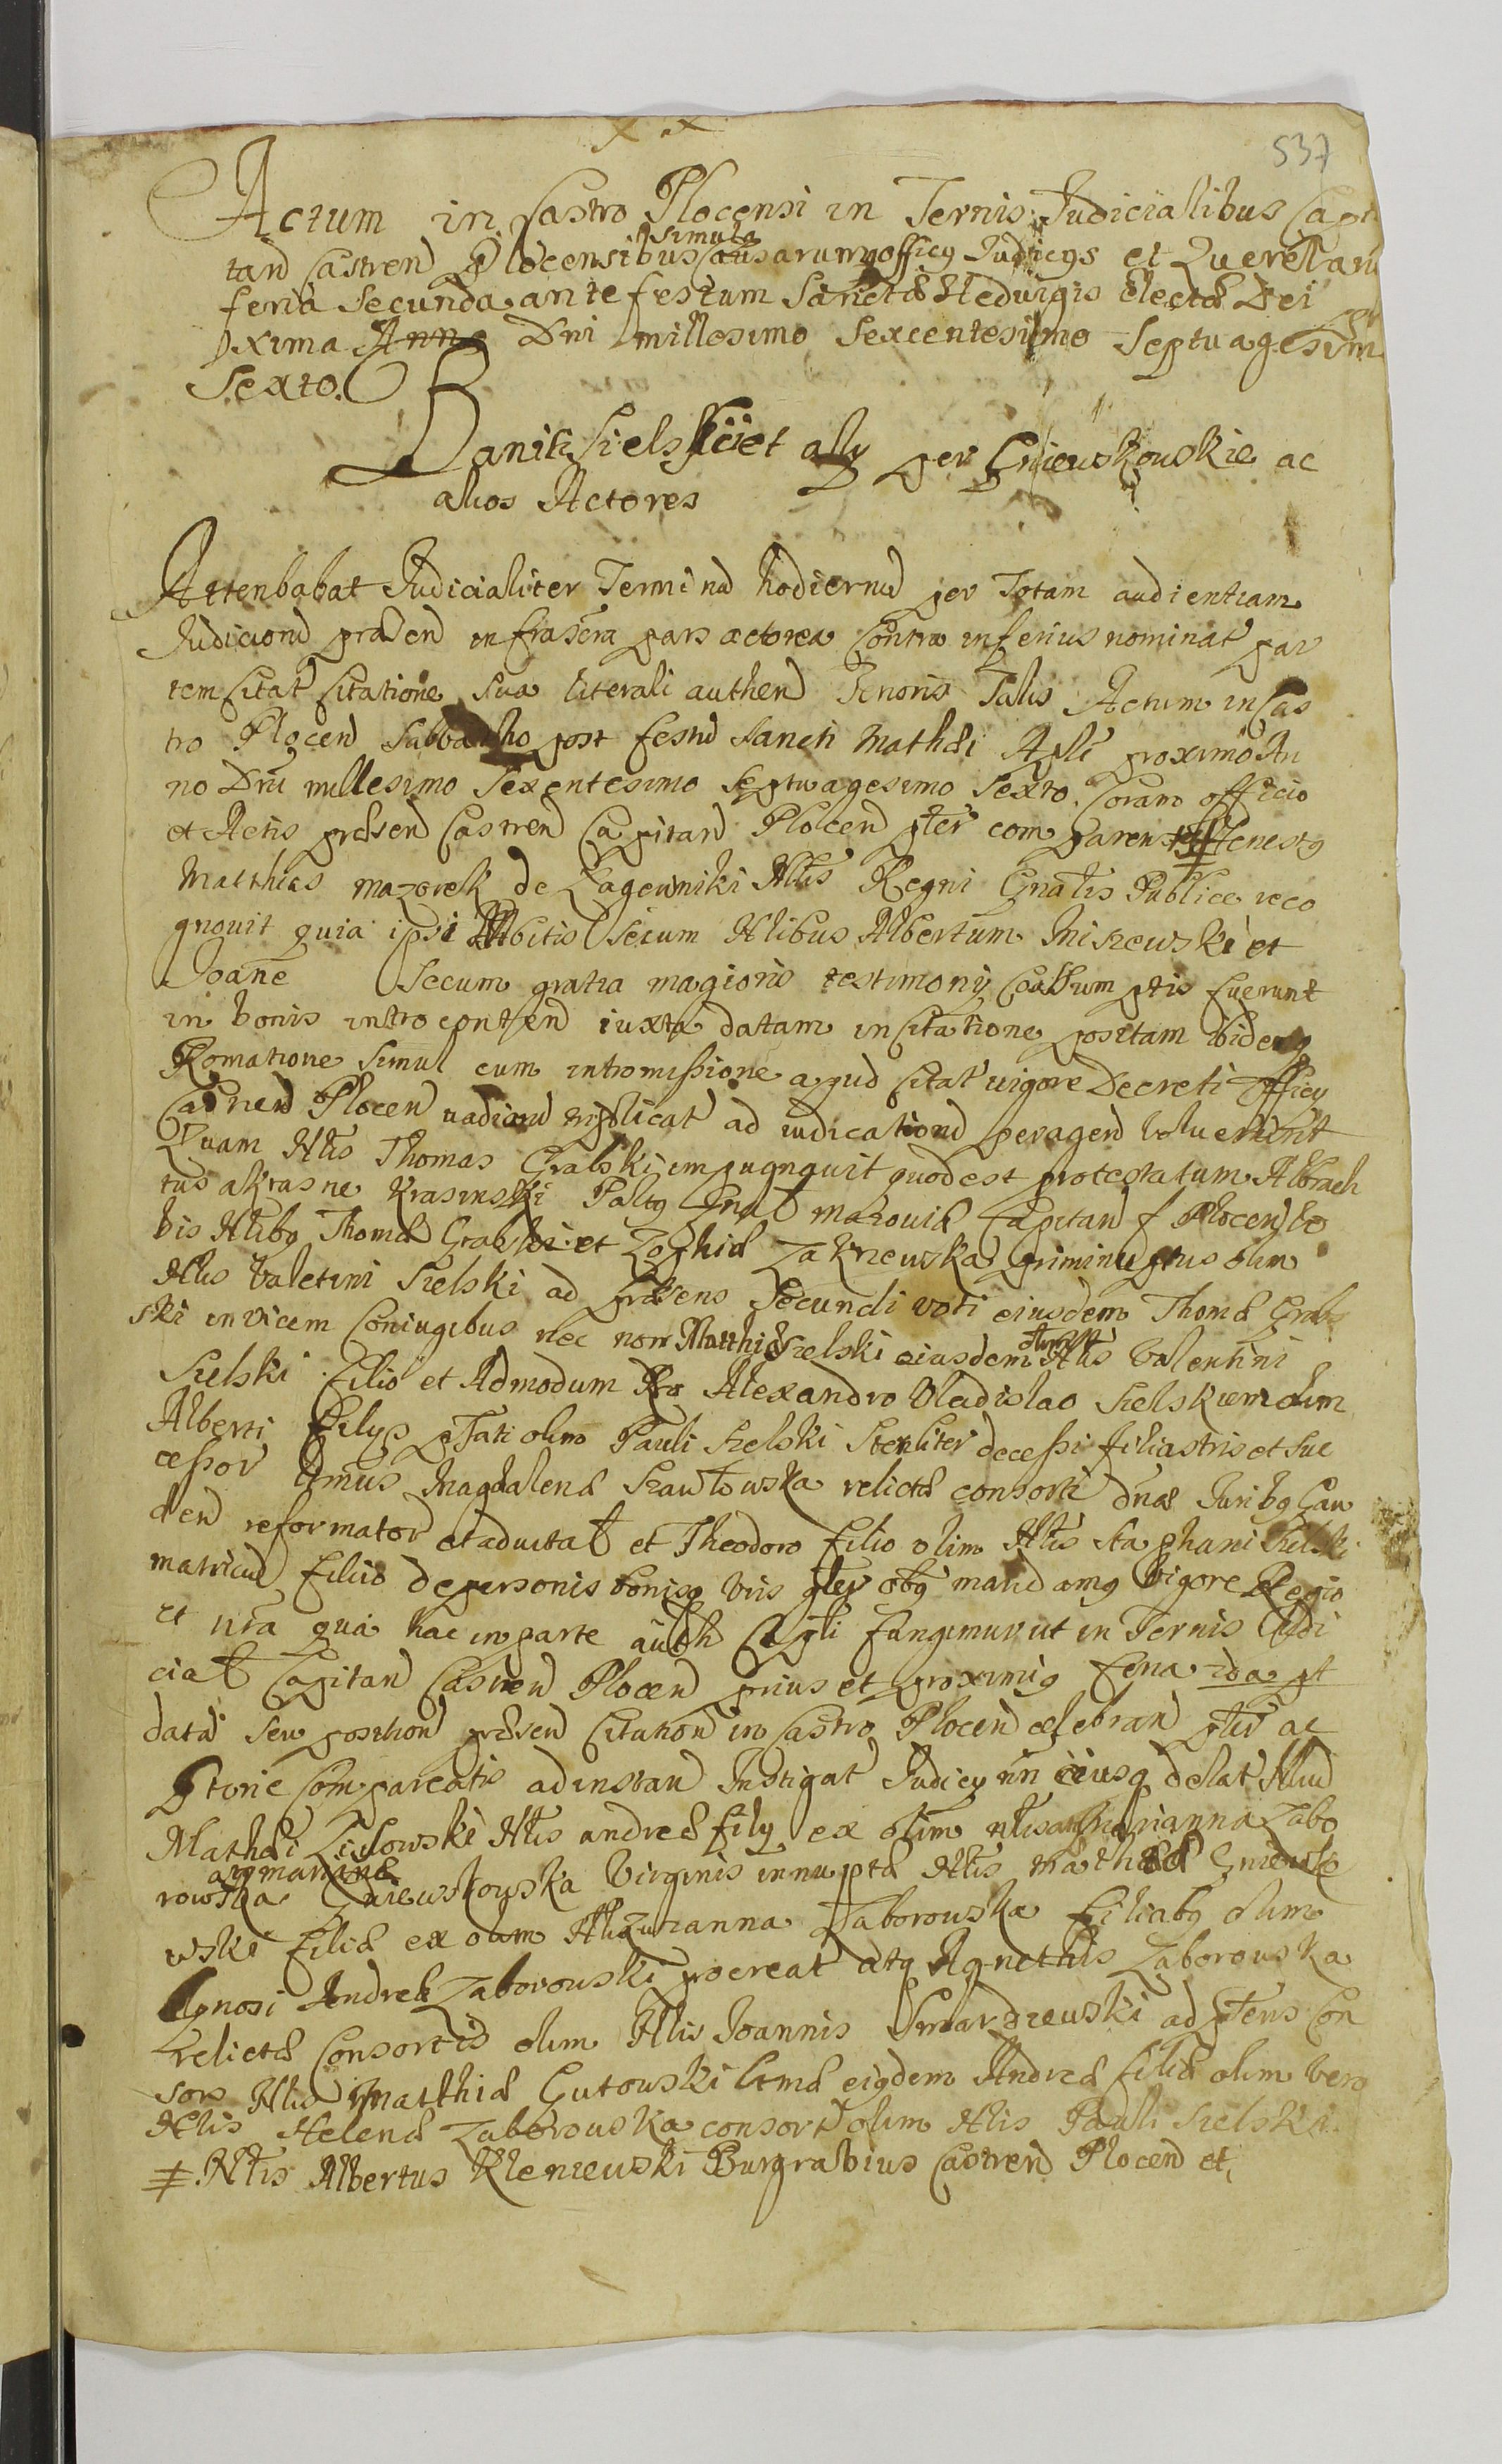 537
Actum in Castro Plocensi in Ternis Judiciallibus Capi
tan Castren Plocensibus simulq Causarum officy Judicys et Querellaru
feria Secunda ante festum Sanctæ Hedvigis Electæ Dei
pxima Anno Dni millesimo Sexcentesimo Septuagesim
Sexto.
Banit Sielskiet aly per Gniewskowskie ac
alios Actores
Attenbabat Judicialiter Terminu hodiernu per Totam audientiam
Judiciorum præsen infrascra pars actorea Contra inferius nominat par
tem Citat Citatione sua literali authen Tenoris Talis Actum in Cas
tro Plocen Subbatho post festu Sancti Mathæi Apli proximo An
no Dni millesimo Sexentesimo Septuagesimo Sexto. Coram officio
et Actis præsen Castren Capitan Plocen pter comparens # Honestq
Matthias mazorek de Lagewniki Mtis Regni Gnalis Publice reco
gnovit quia ipsi Nbitis Secum Nlibus Albertum Miszewski et
Joane Secum gratia magioris testimony Coassumptis fuerunt
in bonis introconten iuxta datam in Citatione positam ibideq
Romatione Simul cum intromissione apud Citat vigore Decreti officy
Castren Plocen vadiorum ad iudicationem peragen voluerunt
Quam Nlis Thomas Grabski impugnavit quod est protestatum Albrach
tus a Krasne Krasinski Paltq Gnal mazoviæ Capitan Plocen vo
bis Nlibq Thomæ Grabski et Zophiæ Zakrzewska primi nuptus olim
Nlis Valetini Sielski ad præsens Secundi voti eiusdem Thomæ Grab
ski invicem Coniugibus nec non Matthiæ Sielski eiusdem Nlis Valentini
Sielski filio et Admodum Rdo Alexandro Vladislao Sielskiem olim
Alberti filys pfati olim Pauli Sielski Steriliter decessi filiastris et Suc
cessor Magdalenæ Szawłowska relictæ consorti dnæ Juribq Gau
den reformator et advital et Theodoro filio olim Nlis Staphani Sielski
matricu filiis de personis bonisq vris gnler obq mandamq Vigore Regio
et nra qua hac in parte auth Capli fungimur ut in Ternis Judi
cial Capitan Castren Plocen prius et proximis feria 2da pt
data seu position præsen Citation in Castro Plocen celebran pter ac
ptorie Compareatis ad instan Instigat Judicy nri eiusq delat Nliu
Mathæi Zislowski Nlis andreæ fily ex olim Marianna Zabo
rowska ac marianæ Gniewskowska Virginis innuptæ Nlis Mathææ Gniewsko
wski filiæ ex olim Nli Zuzanna Zaborowska filiabq olim
Gnosi Andreæ Zaborowski procreat atq Agnethis Zaborowska
relictæ Consortis olim Nlis Joannis Smardzewski ad ptens Con
sors Nlis Matthiæ Gutowski eiqdem Andreæ filiæ olim vero
Nlis Helenæ Zaborowska consort olim Nlis Pauli Sielski.
# Nlis Albertus Kleniewski Burgrabius Castren Plocen et